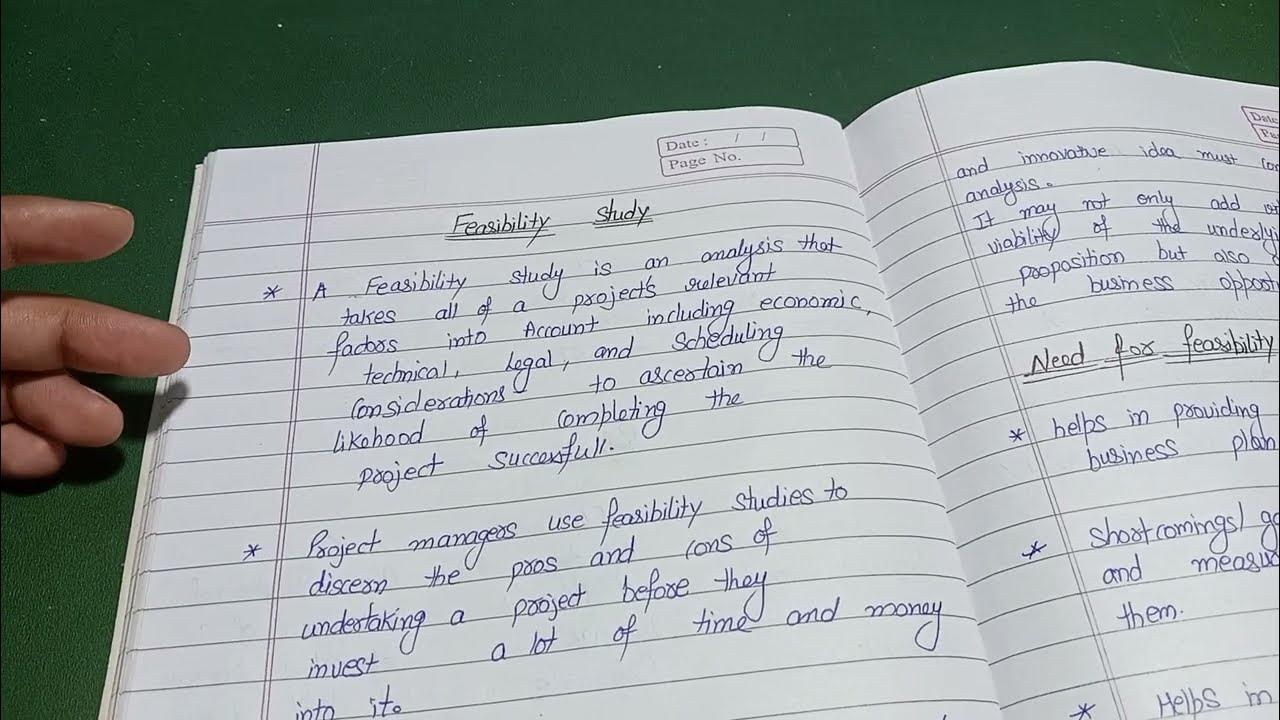 Date: / /
Page No.
Feasibility Study
* A Feasibility study is an analysis that
takes all of a project's relevant
factors into Account including economic,
technical, Legal, and Scheduling
Considerations to ascertain the
likehood of completing the
project Successfull.
* Project managers use feasibility studies to
discern the pros and cons of
undertaking a project before they
invest a lot of time and money
into it.
Date
and innovative idea must
analysis.
It may not only add
viability of the
proposition but also
the business
Need for feasibility
* helps in providing
business plan
* Shortcomings/
and
them.
* Helps in